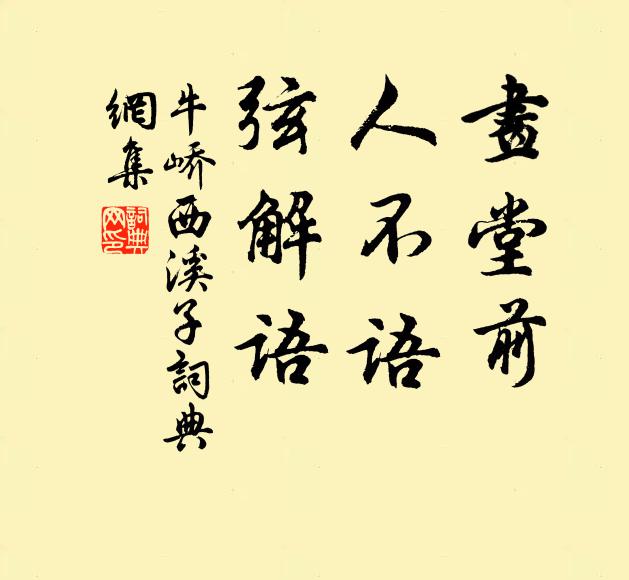 畫堂前
人不語
弦解語
牛嶠西溪子詞典
網集
詞典
网印